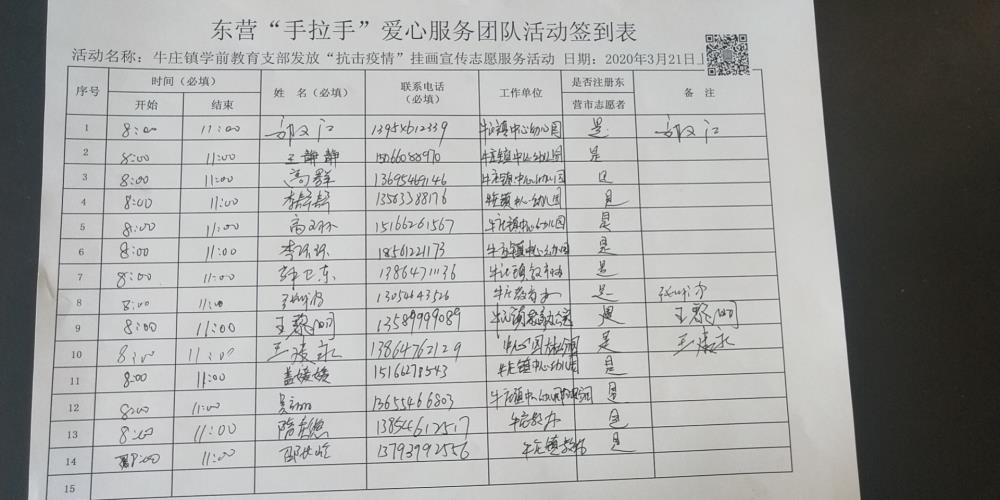 东营“手拉手”爱心服务团队活动签到表
活动名称：牛庄镇学前教育支部发放“抗击疫情”挂画宣传志愿服务活动 日期：2020年3月21日
序号 时间（必填） 姓 名（必填） 联系电话（必填） 工作单位 是否注册东营市志愿者 备 注
开始 结束
1 8:00 11:00 13954612339 牛庄镇中心幼儿园 是
2 8:00 11:00 王静静 15066088970 牛庄镇中心幼儿园 是
3 8:00 11:00 高群 13695469146 牛庄镇中心幼儿园 是
4 8:00 11:00 13563388176 牛庄镇中心幼儿园 是
5 8:00 11:00 高 15166261567 牛庄镇中心幼儿园 是
6 8:00 11:00 李 18561221173 牛庄镇中心幼儿园 是
7 8:00 11:00 韩卫东 13864711136 牛庄镇 是
8 8:00 11:00 13054643526 牛庄教办 是
9 8:00 11:00 王黎明 13589999089 牛庄镇教办 是 王黎明
10 8:00 11:00 王 13864762129 中心园 是 王
11 8:00 11:00 盖媛媛 15166278543 牛庄镇中心幼儿园 是
12 8:00 11:00 13655466803 牛庄镇中心幼儿园 是
13 8:00 11:00 隋 13854612517 牛庄教办 是
14 8:00 11:00 邵 13793992556 牛庄镇教办 是
15